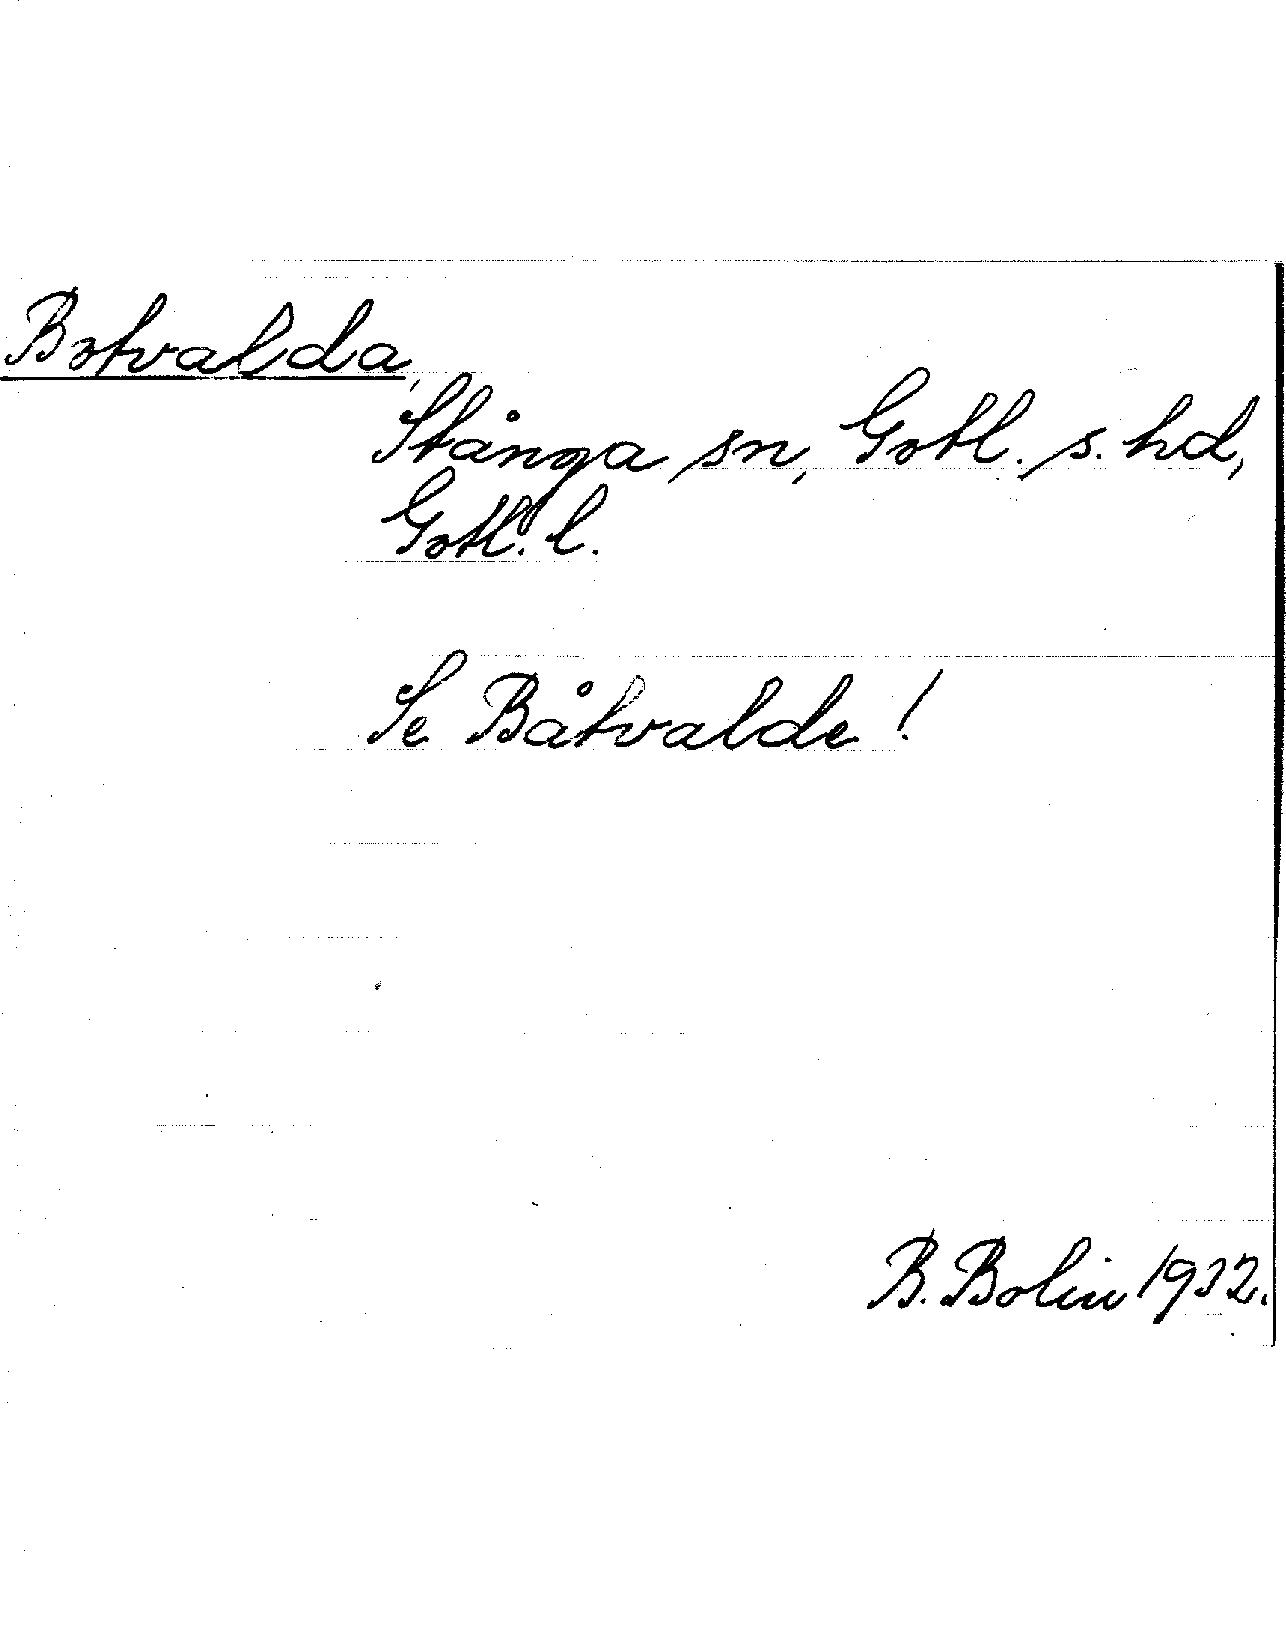 Botvalda,
Stånga sn, Gotl. s. hd,
Gotl. l.
Se Båtvalde!
B. Bolin 1932.